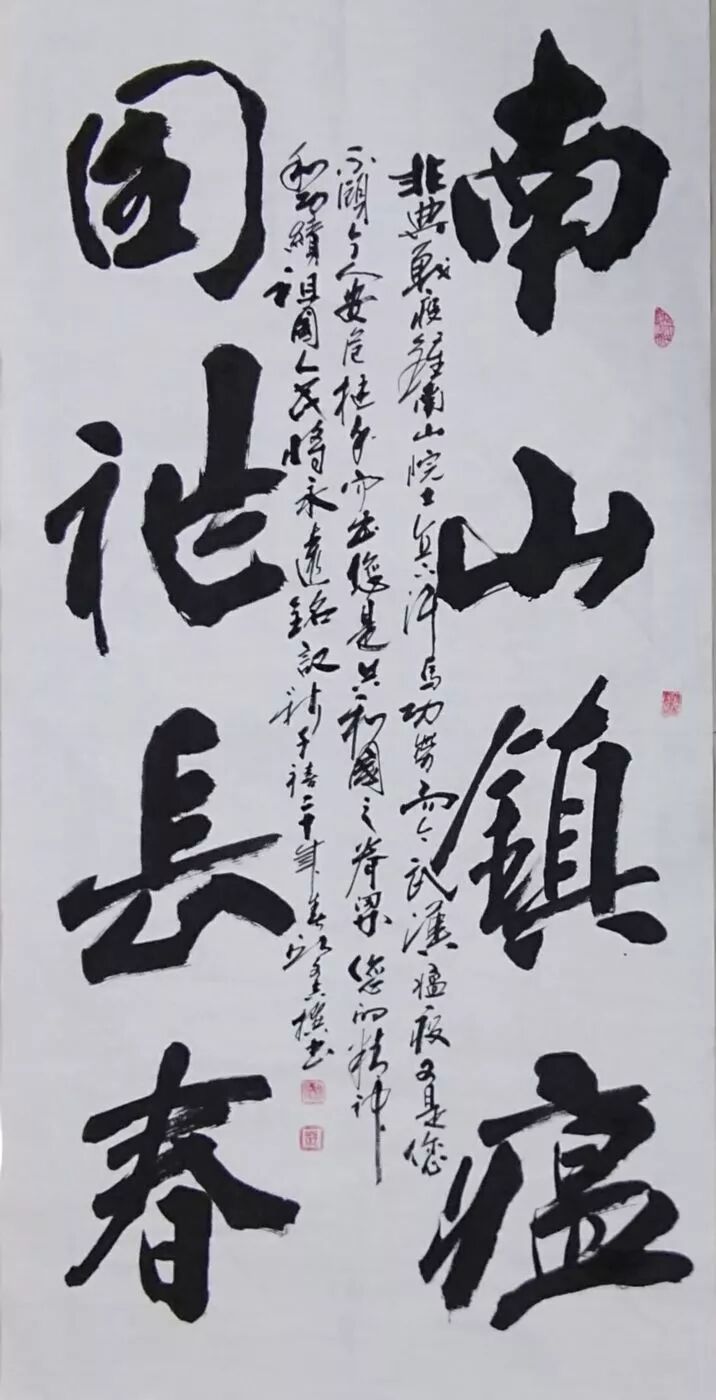 南山鎮瘟
非典戰疫鍾南山院士汗馬功勞而今武漢瘟疫又是您
不顧个人安危挺身而出您是共和國之脊梁您的精神
和功績祖國人民將永遠銘記二十年春書
国祚長春